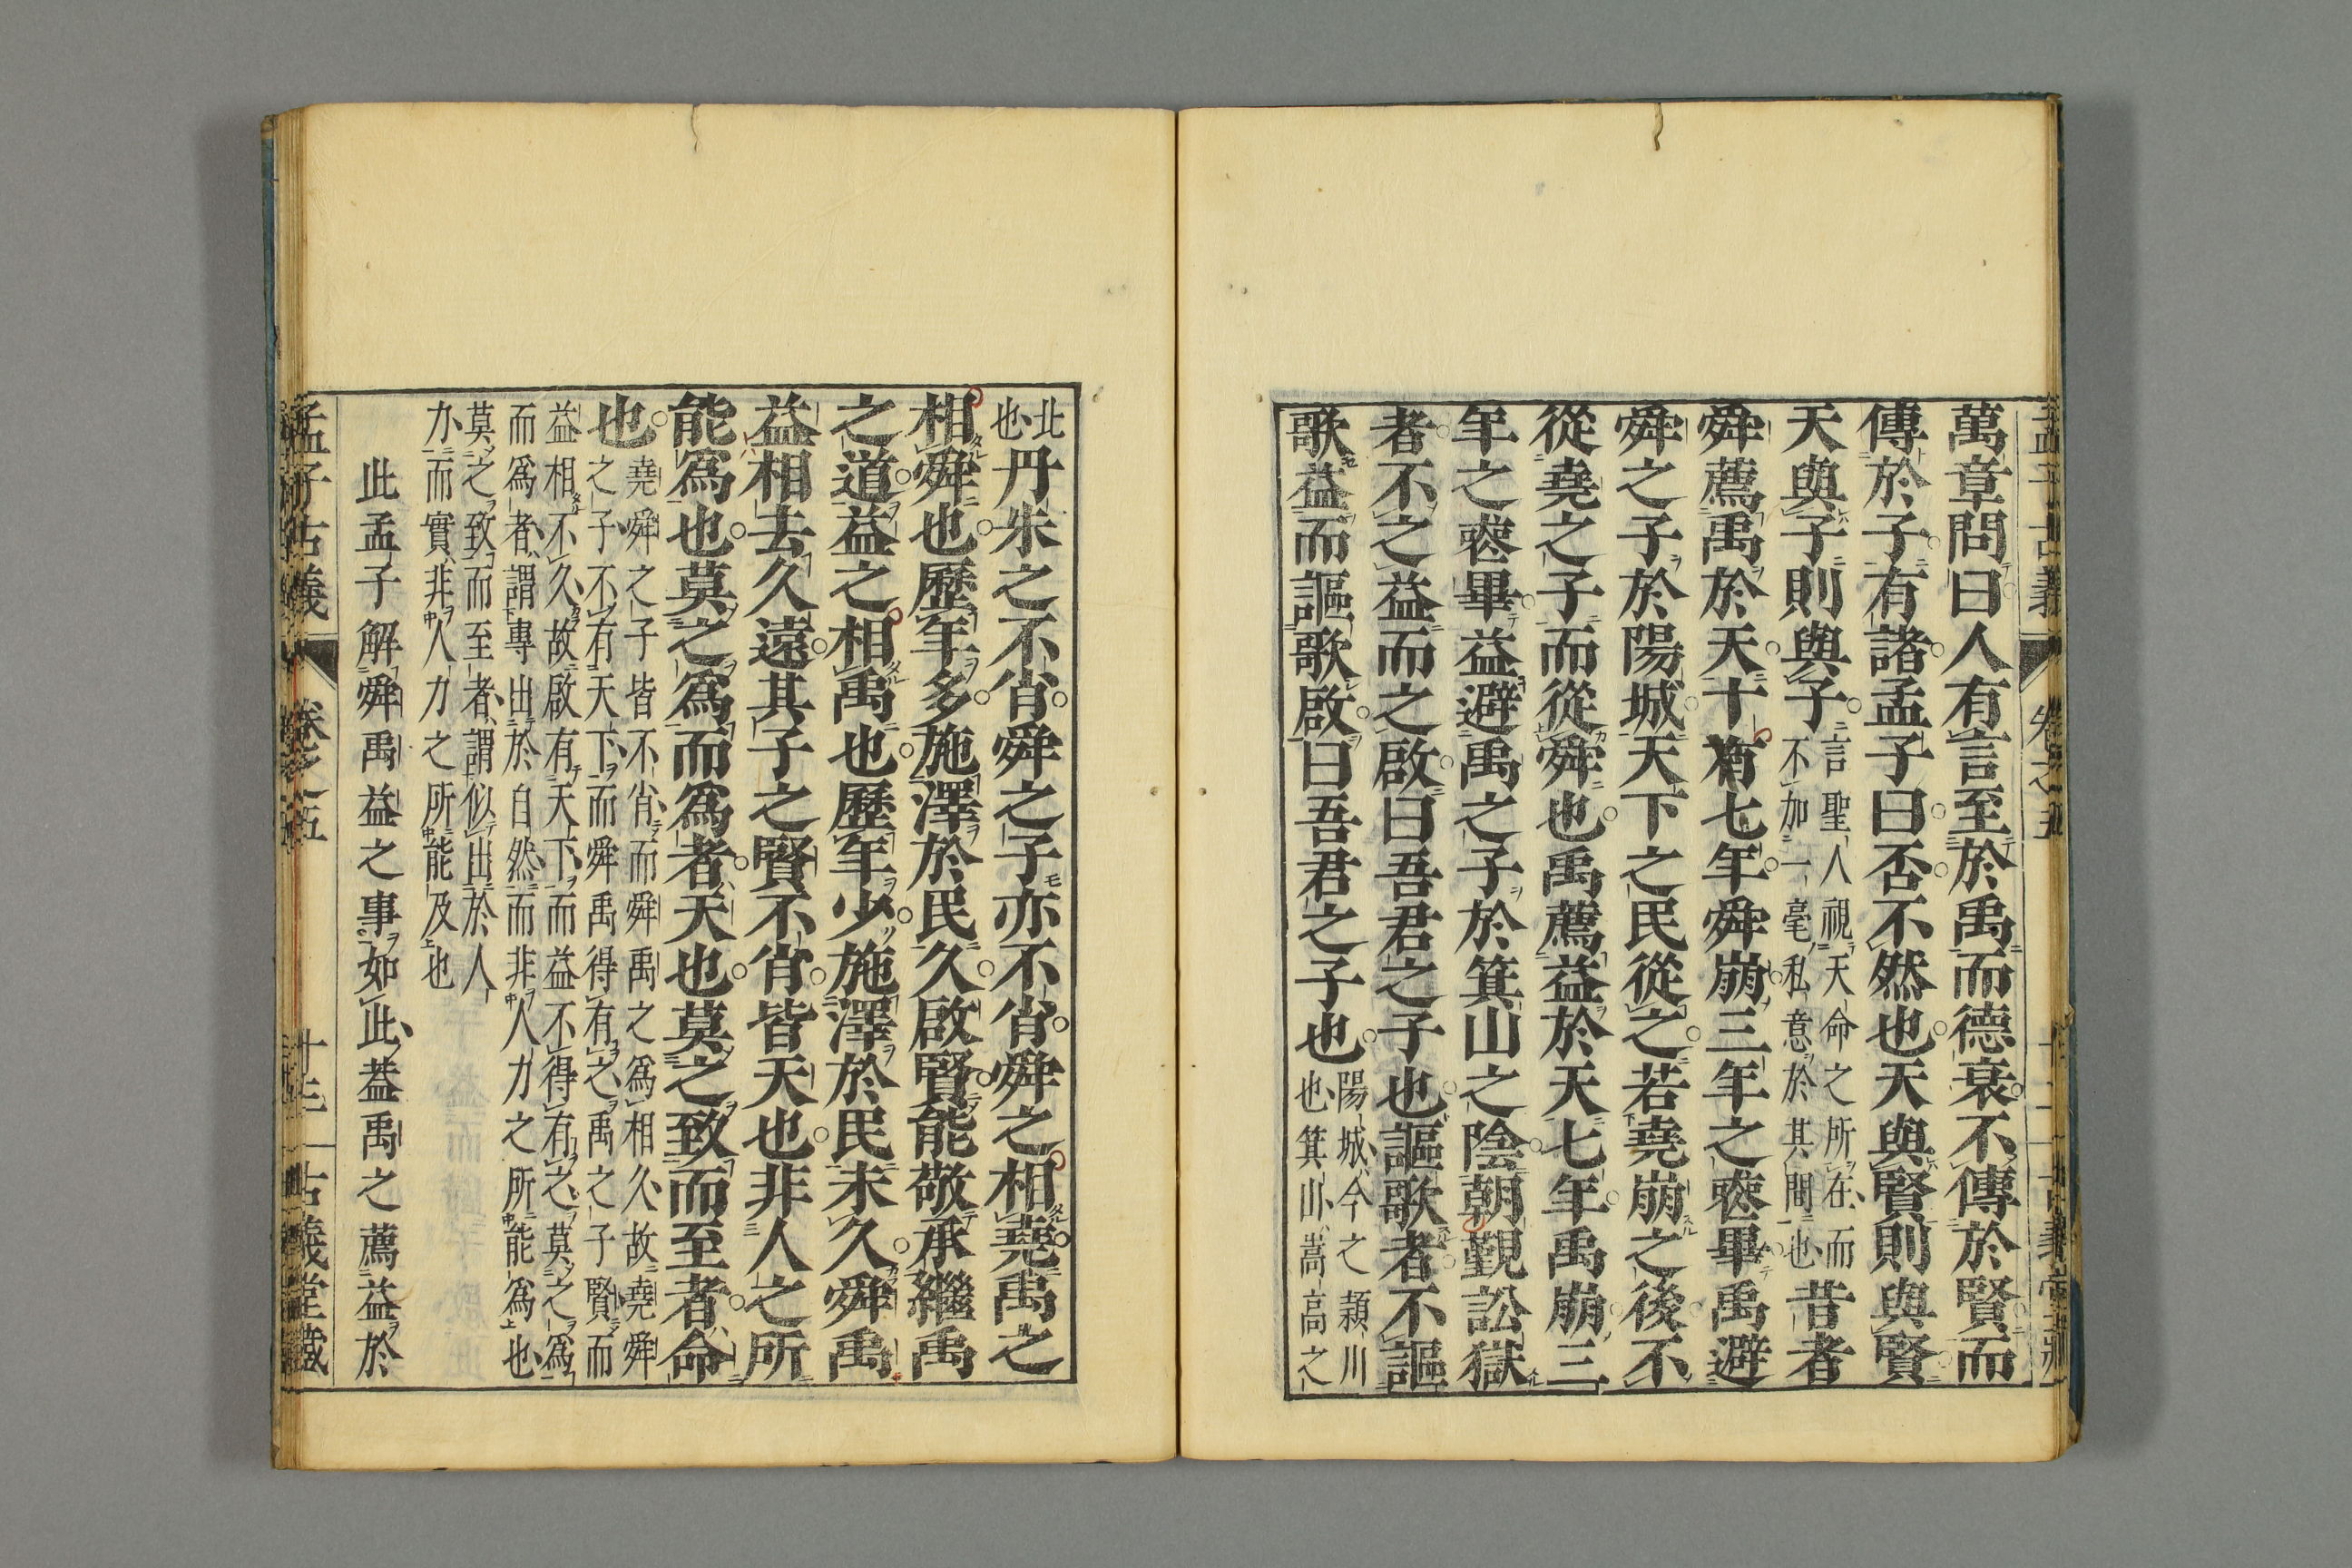 萬章問曰人有言至於禹而德衰不傳於賢而
傳於子有諸孟子曰否不然也天與賢則與賢
天與子則與子
言聖人視天命之所在而
不加一毫私意於其間也
昔者
舜薦禹於天十有七年舜崩三年之喪畢禹避
舜之子於陽城天下之民從之若堯崩之後不
從堯之子而從舜也禹薦益於天七年禹崩三
年之喪畢益避禹之子於箕山之陰朝覲訟獄
者不之益而之啟曰吾君之子也謳歌者不謳
歌益而謳歌啟曰吾君之子也
陽城今之潁川
也箕山嵩高之
北
也
丹朱之不肖舜之子亦不肖舜之相堯禹之
相舜也歷年多施澤於民久啟賢能敬承繼禹
之道益之相禹也歷年少施澤於民未久舜禹
益相去久遠其子之賢不肖皆天也非人之所
能為也莫之為而為者天也莫之致而至者命
也
堯舜之子皆不肖而舜禹之為相久故堯舜
之子不有天下而舜禹得有之禹之子賢而
益相不久故啟有天下而益不得有之莫之為
而為者謂專出於自然而非人力之所能為也
莫之致而至者謂似出於人
力而實非人力之所能及也
此孟子解舜禹益之事如此葢禹之薦益於
孟子古義 卷之五 十三 古義堂藏